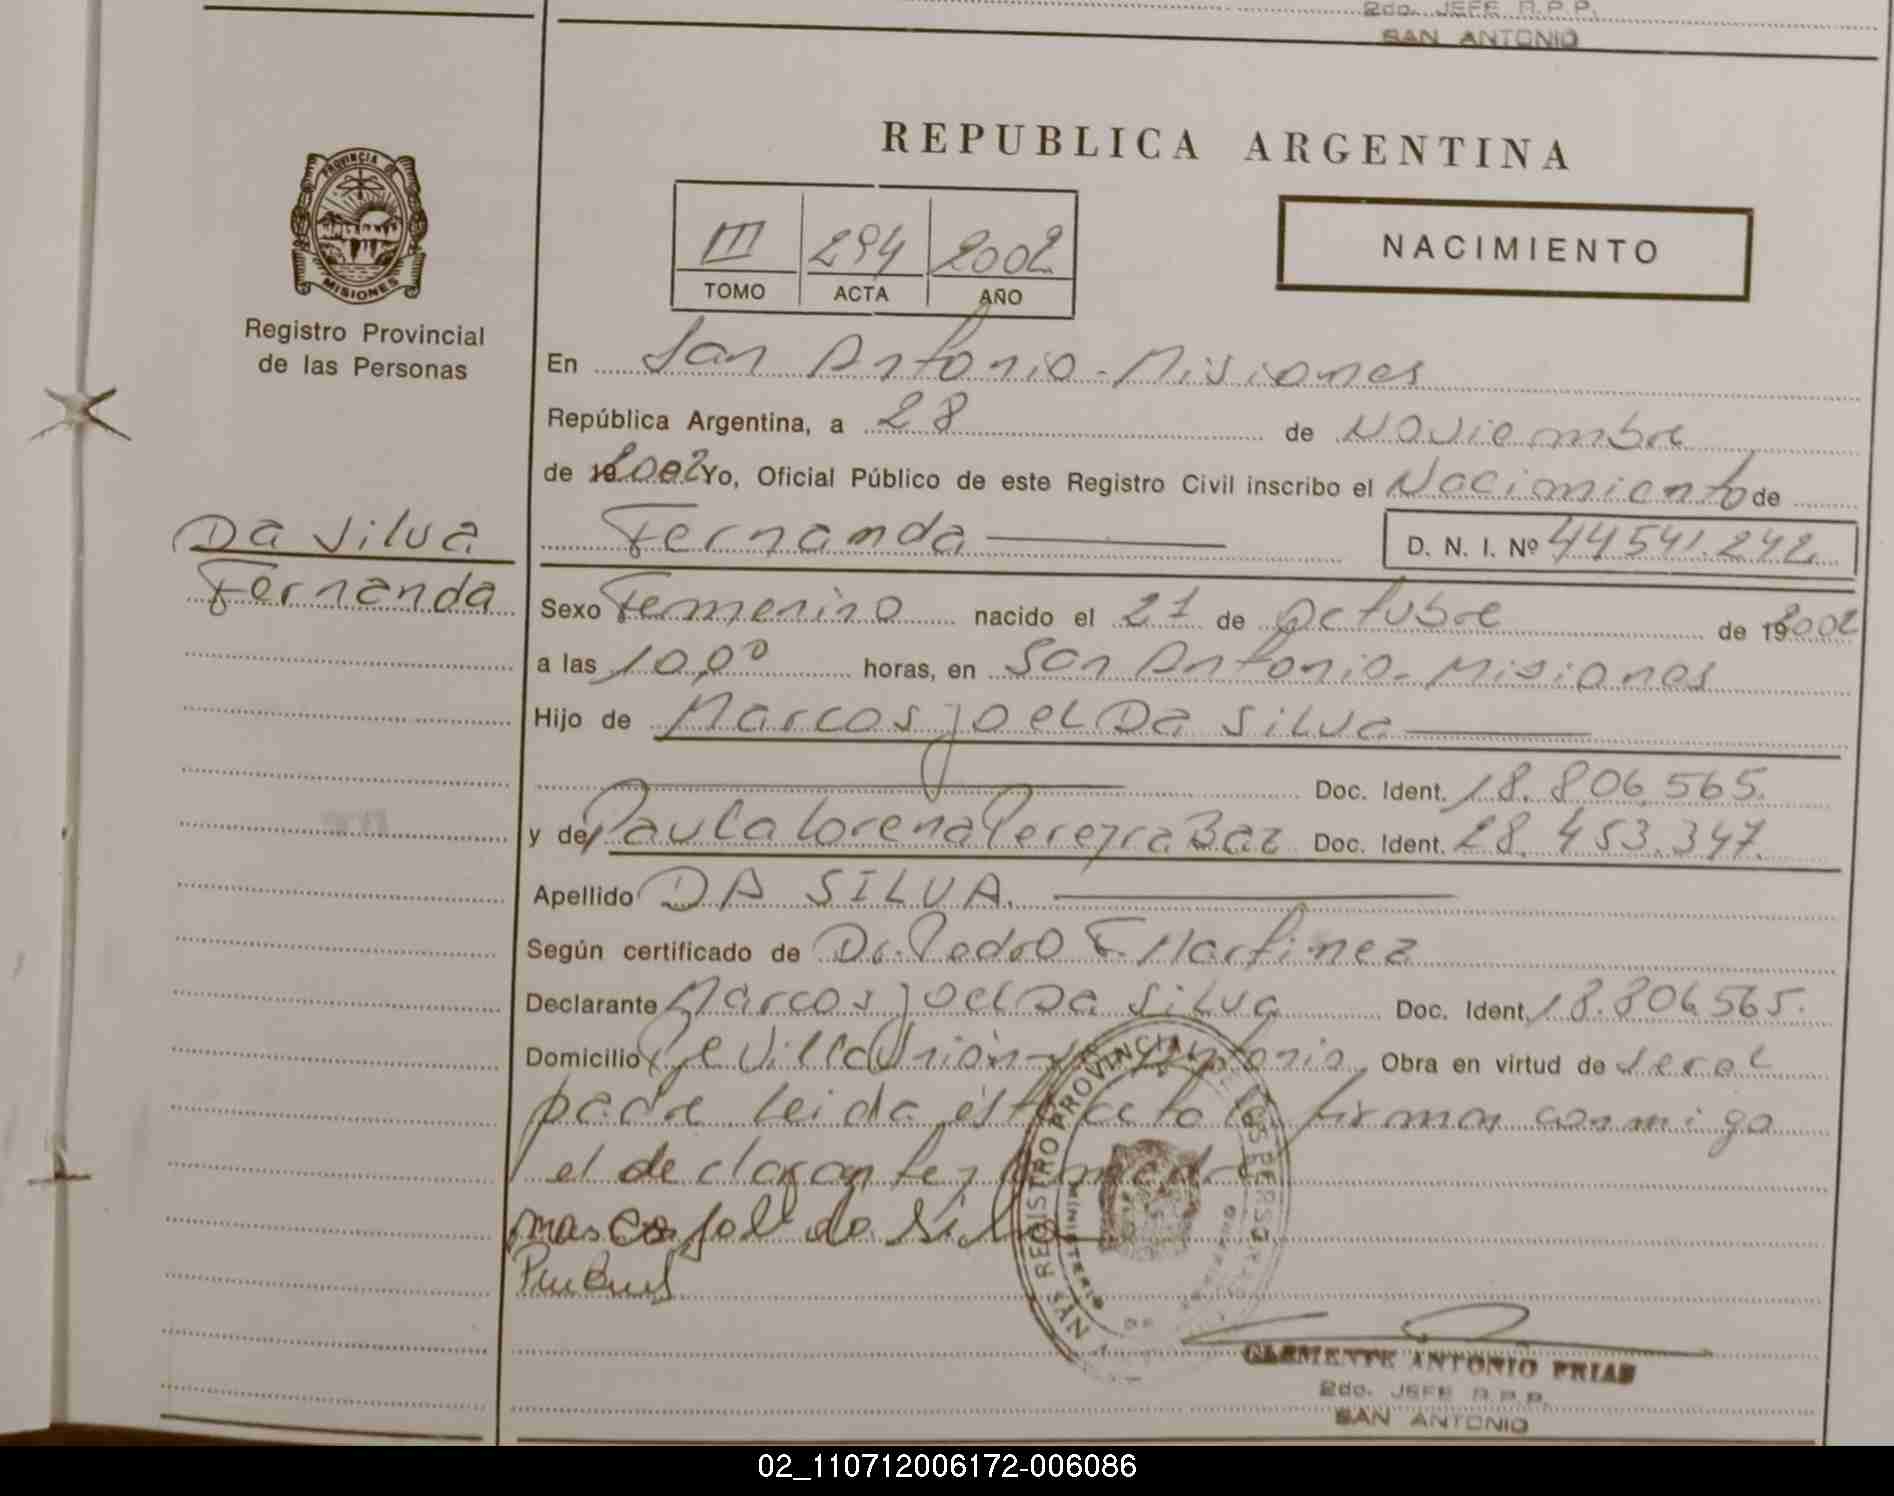 2do. JEFE R.P.P.
SAN ANTONIO
REPUBLICA ARGENTINA
PROVINCIA DE
MISIONES
Registro Provincial
de las Personas
III 294 2002
TOMO ACTA AÑO
NACIMIENTO
En San Antonio - Misiones
República Argentina, a 28 de Noviembre
de 192002 Yo, Oficial Público de este Registro Civil inscribo el Nacimiento de
Da Silva
Fernanda
Fernanda D. N. I. Nº 44541.242
Sexo Femenino nacido el 21 de Octubre de 192002
a las 10,00 horas, en San Antonio - Misiones
Hijo de Marcos Joel Da Silva
Doc. Ident. 18.806.565.
y de Paula Lorena Pereyra Baz Doc. Ident. 28.453.347.
Apellido DA SILVA.
Según certificado de Dr. Pedro F. Martinez
Declarante Marcos Joel Da Silva Doc. Ident. 18.806.565.
Domicilio Villa Unión Antonio Obra en virtud de ser el
padre leida ésta acta la firman conmigo
el declarante y madre
marcos joel da Silva
REGISTRO PROVINCIAL DE LAS PERSONAS
CLEMENTE ANTONIO FRIAS
2do. JEFE R.P.P.
SAN ANTONIO
02_110712006172-006086